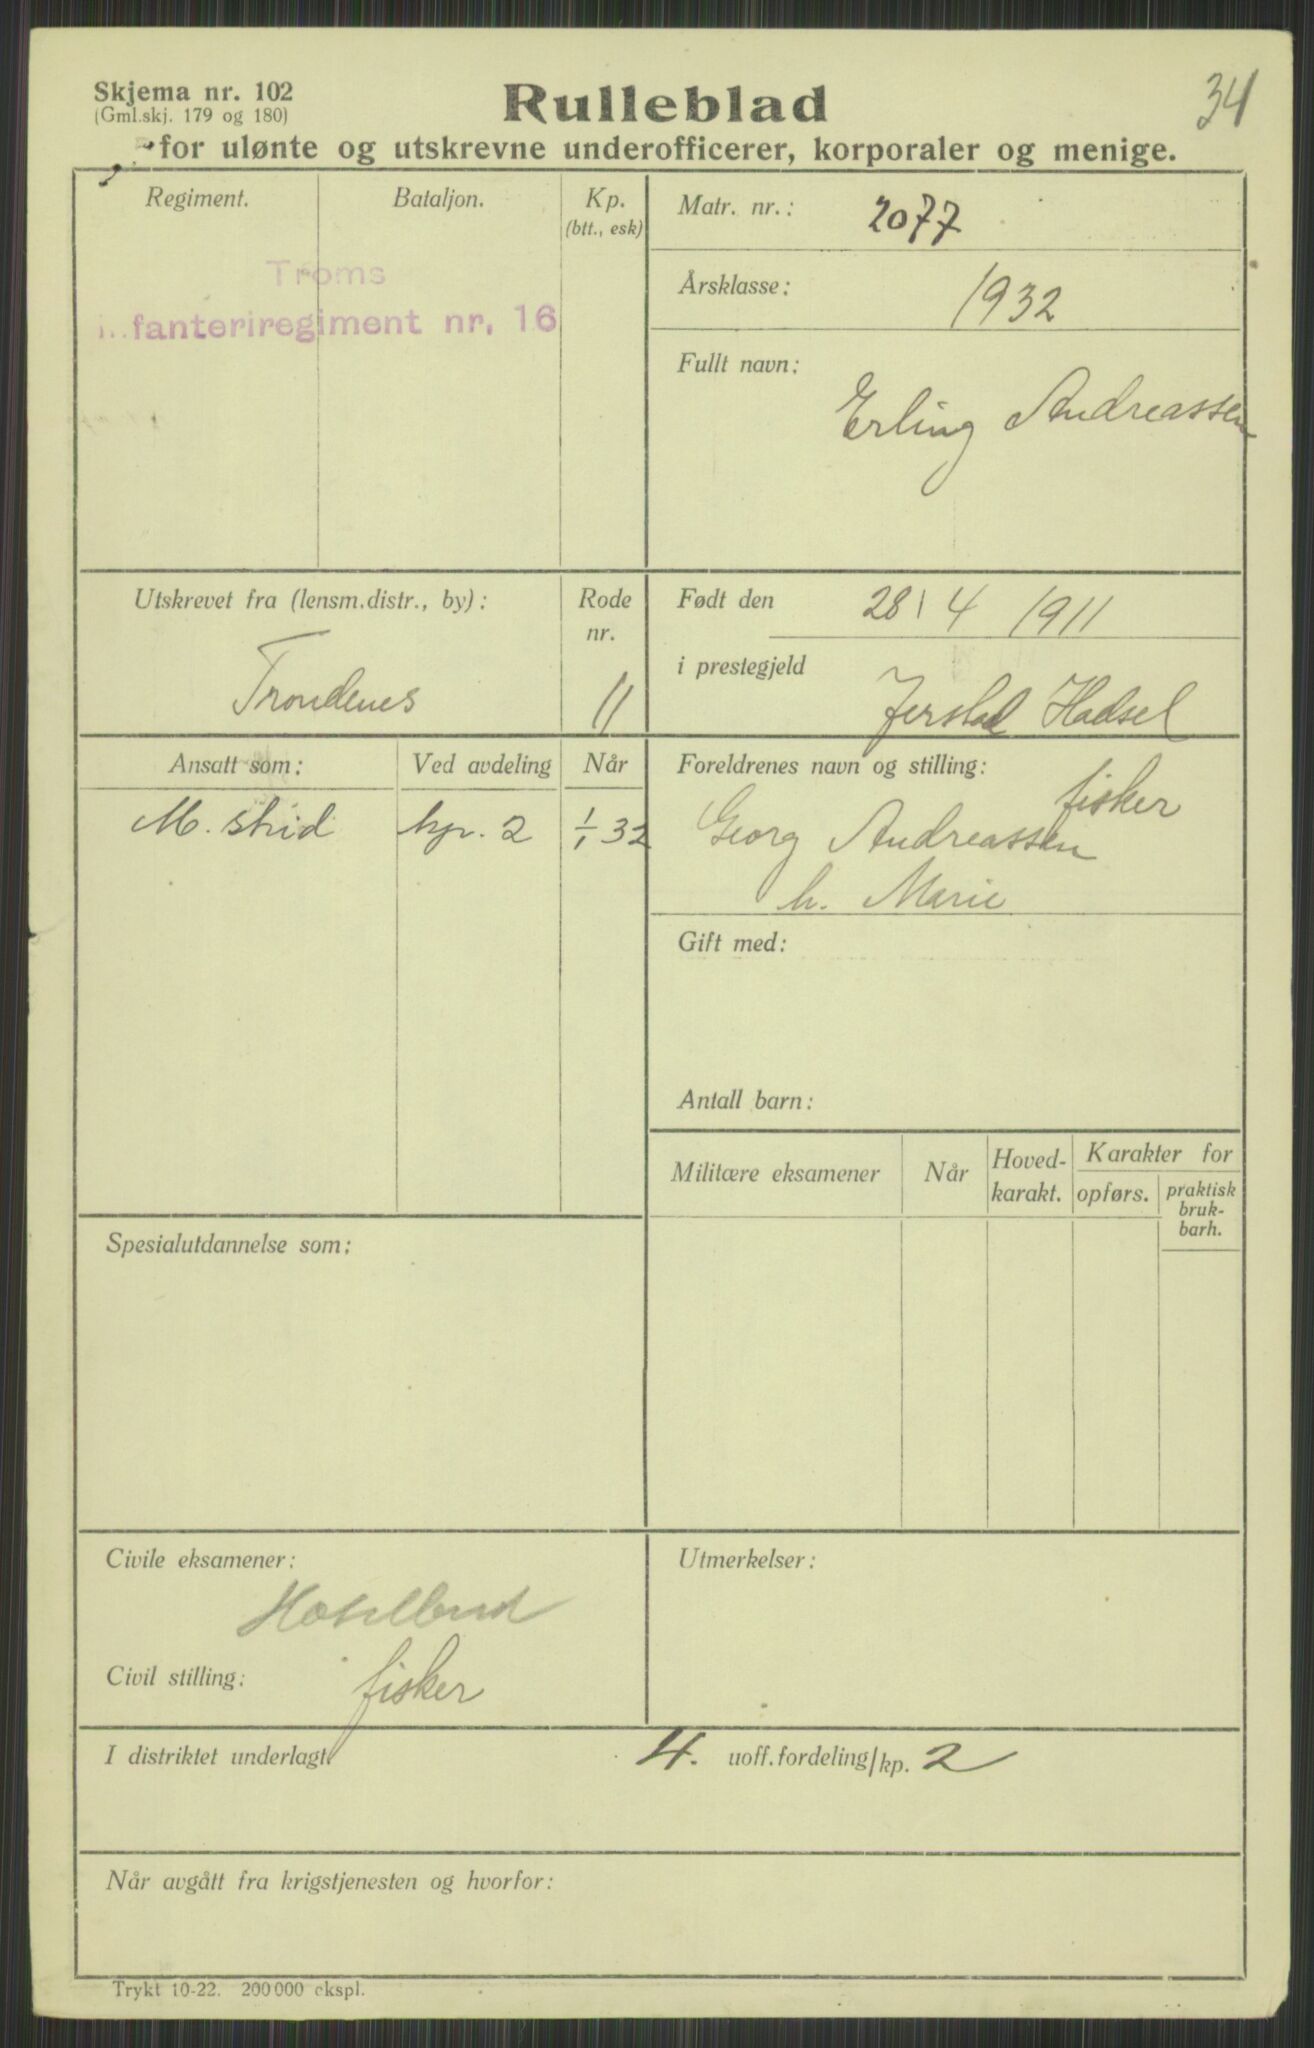 Skjema nr. 102
(Gml.skj. 179 og 180)
Rulleblad
34
for ulønte og utskrevne underofficerer, korporaler og menige.
Regiment.
Bataljon.
Kp.
(btt., esk)
Troms
fanteriregiment nr. 16
Matr. nr.: 2077
Årsklasse: 1932
Fullt navn:
Erling Andreassen
Utskrevet fra (lensm.distr., by):
Trondenes
Rode
nr.
11
Født den 28/4 1911
i prestegjeld
Hadsel
Ansatt som:
Ved avdeling
Når
M. skid
kp. 2
1/1 32
Foreldrenes navn og stilling:
fisker
Georg Andreassen
h. Marie
Gift med:
Antall barn:
Militære eksamener
Når
Hoved-
karakt.
Karakter for
opførs.
praktisk
bruk-
barh.
Spesialutdannelse som:
Civile eksamener:
Civil stilling: fisker
Utmerkelser:
I distriktet underlagt 4. uoff.fordeling/kp. 2
Når avgått fra krigstjenesten og hvorfor:
Trykt 10-22. 200 000 ekspl.